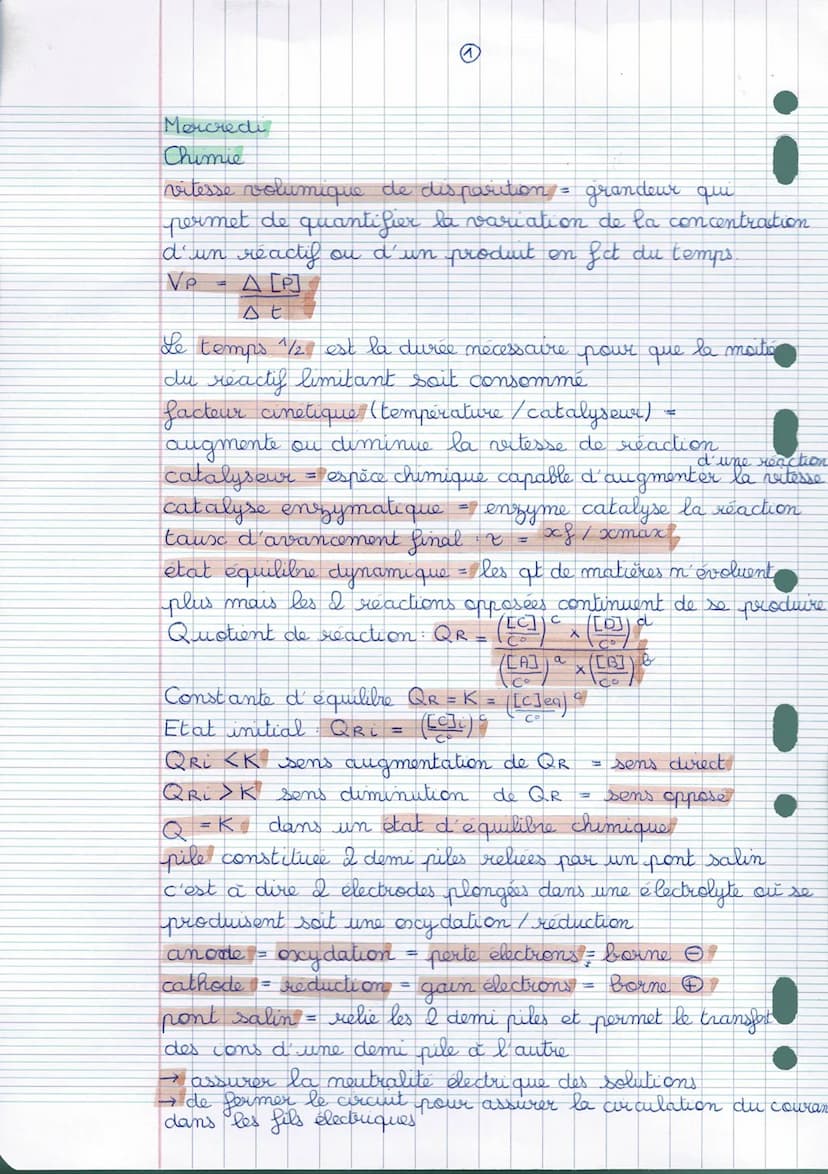 ①
Mercredi
Chimie
vitesse volumique de disparition = grandeur qui
permet de quantifier la variation de la concentration
d'un réactif ou d'un produit en fct du temps.
VP = Δ [P]
Δ t
Le temps 1/2 est la durée nécessaire pour que la moitié
du réactif limitant soit consommé
facteur cinétique (température / catalyseur) =
augmente ou diminue la vitesse de réaction
d'une réaction
catalyseur = espèce chimique capable d'augmenter la vitesse
catalyse enzymatique = enzyme catalyse la réaction
taux d'avancement final : τ = xf / xmax
état équilibre dynamique = les qt de matières n'évoluent
plus mais les 2 réactions opposées continuent de se produire
Quotient de réaction : QR = ([C]/C°)^c × ([D]/C°)^d
([A]/C°)^a × ([B]/C°)^b
Constante d'équilibre QR = K = ([C]eq/C°)^c
Etat initial : QRi = ([C]i/C°)^c
QRi < K sens augmentation de QR = sens direct
QRi > K sens diminution de QR = sens opposé
Q = K dans un état d'équilibre chimique
pile constituée 2 demi piles reliées par un pont salin
c'est à dire 2 électrodes plongées dans une électrolyte où se
produisent soit une oxydation / réduction
anode = oxydation = perte électrons = borne ⊖
cathode = réduction = gain électrons = borne ⊕
pont salin = relie les 2 demi piles et permet le transfert
des ions d'une demi pile à l'autre
→ assurer la neutralité électrique des solutions
→ de fermer le circuit pour assurer la circulation du couran
dans les fils électriques